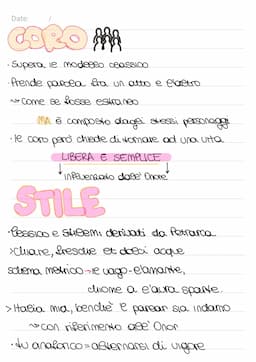 Date: /
CORO
• Supera il modello classico
• Prende parola fra un atto e l'altro
↝ Come se fosse estraneo
MA è composto dagli stessi personaggi
• Il coro però chiede di tornare ad una vita
LIBERA E SEMPLICE
↓ influenzato dall'Onore ↓
STILE
• Lessico e stilemi derivati da Petrarca
> Chiare, fresche et dolci acque
schema metrico → il vago e l'amante,
chiome a l'aura sparte.
> Italia mia, benché 'l parlar sia indarno
↝ con riferimento all'Onor
• tu anaforico = alternarsi di vigore